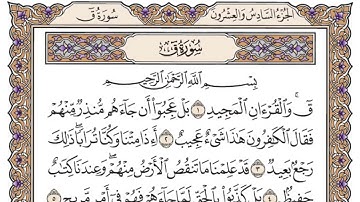 سُورَةُ قٓ الجُزْءُ السَّادِسُ وَالعِشْرُونَ
سُورَةُ قٓ
بِسْمِ اللَّهِ الرَّحْمَٰنِ الرَّحِيمِ
قٓ ۚ وَالْقُرْءَانِ الْمَجِيدِ ١ بَلْ عَجِبُوا أَن جَاءَهُم مُّنذِرٌ مِّنْهُمْ
فَقَالَ الْكَٰفِرُونَ هَٰذَا شَيْءٌ عَجِيبٌ ٢ أَءِذَا مِتْنَا وَكُنَّا تُرَابًا ۖ ذَٰلِكَ
رَجْعٌ بَعِيدٌ ٣ قَدْ عَلِمْنَا مَا تَنقُصُ الْأَرْضُ مِنْهُمْ ۖ وَعِندَنَا كِتَٰبٌ
حَفِيظٌ ٤ بَلْ كَذَّبُوا بِالْحَقِّ لَمَّا جَاءَهُمْ فَهُمْ فِي أَمْرٍ مَّرِيجٍ ٥